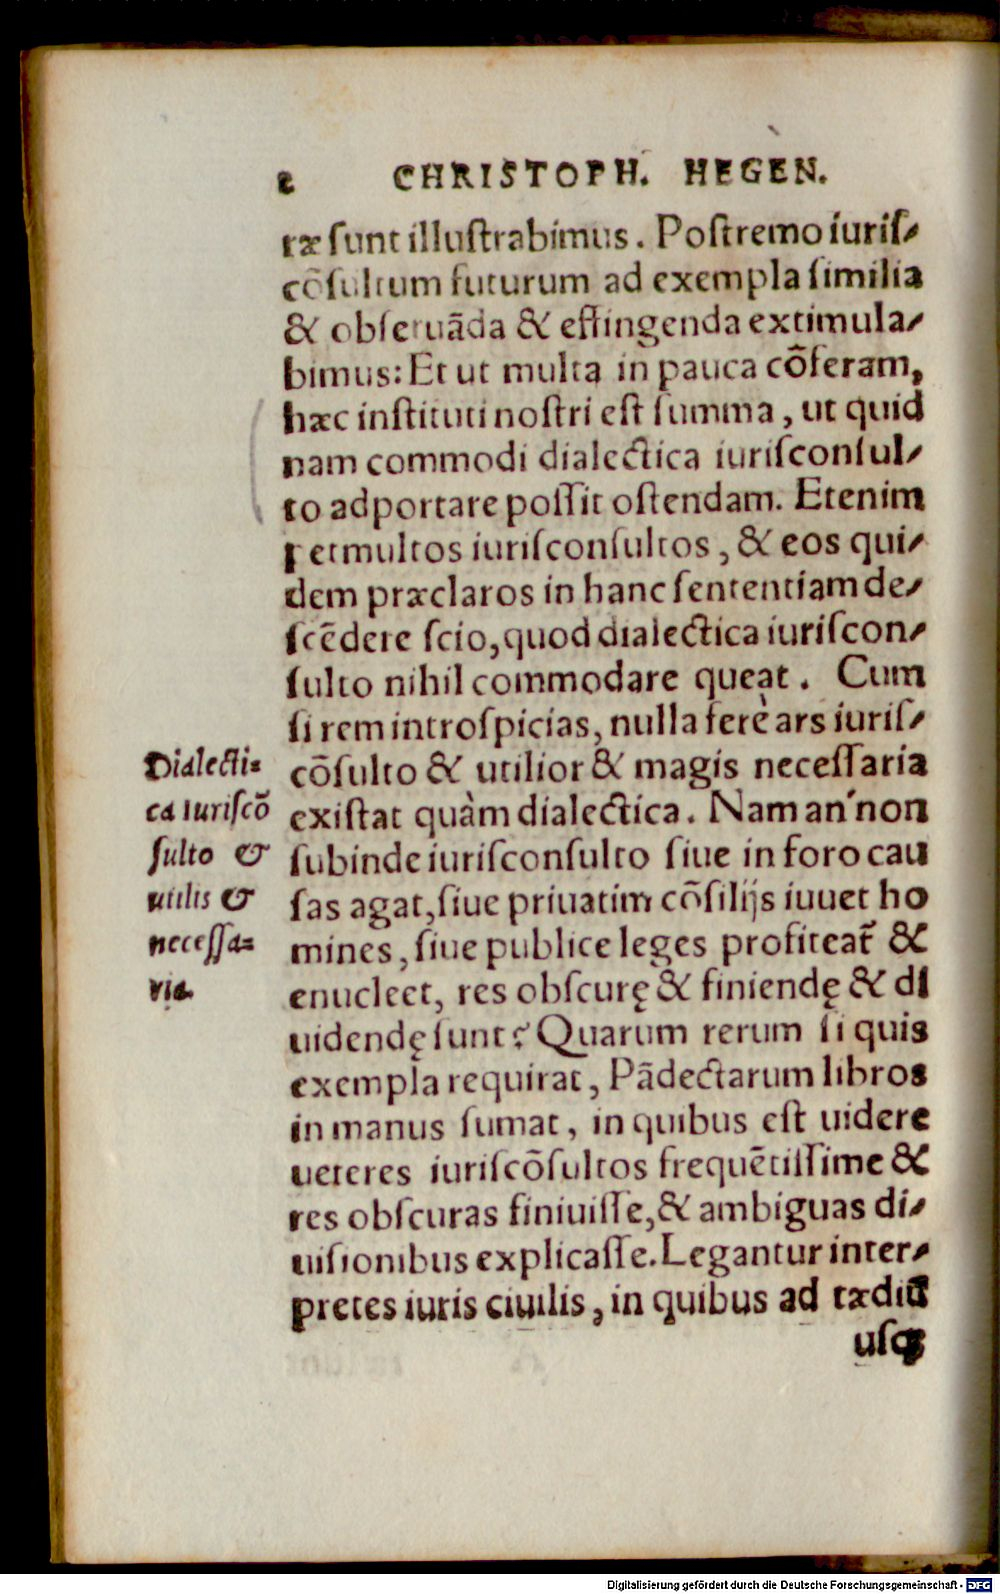 2 CHRISTOPH. HEGEN.
ræ ſunt illuſtrabimus. Poſtremo iuriſ-
cõſultum futurum ad exempla ſimilia
& obſeruãda & effingenda extimula-
bimus: Et ut multa in pauca cõferam,
hæc inſtituti noſtri eſt ſumma, ut quid
nam commodi dialectica iuriſconſul-
to adportare poſſit oſtendam. Etenim
permultos iuriſconſultos, & eos qui-
dem præclaros in hanc ſententiam de-
ſcẽdere ſcio, quod dialectica iuriſcon-
ſulto nihil commodare queat. Cum
ſi rem introſpicias, nulla ferè ars iuriſ-
cõſulto & utilior & magis neceſſaria
exiſtat quàm dialectica. Nam an' non
ſubinde iuriſconſulto ſiue in foro cau
ſas agat, ſiue priuatim cõſilijs iuuet ho
mines, ſiue publice leges profiteat᷑ &
enucleet, res obſcurę & finiendę & di
uidendę ſunt? Quarum rerum ſi quis
exempla requirat, Pãdectarum libros
in manus ſumat, in quibus eſt uidere
ueteres iuriſcõſultos frequẽtiſſime &
res obſcuras finiuiſſe, & ambiguas di-
uiſionibus explicaſſe. Legantur inter-
pretes iuris ciuilis, in quibus ad tædiũ
uſq;
Dialecti-
ca iuriſcõ
ſulto &
utilis &
neceſſa-
ria.
Digitalisierung gefördert durch die Deutsche Forschungsgemeinschaft - DFG